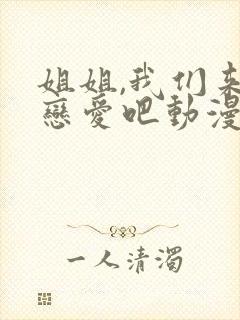 姐姐,我们来
戀愛吧動漫
一人清濁